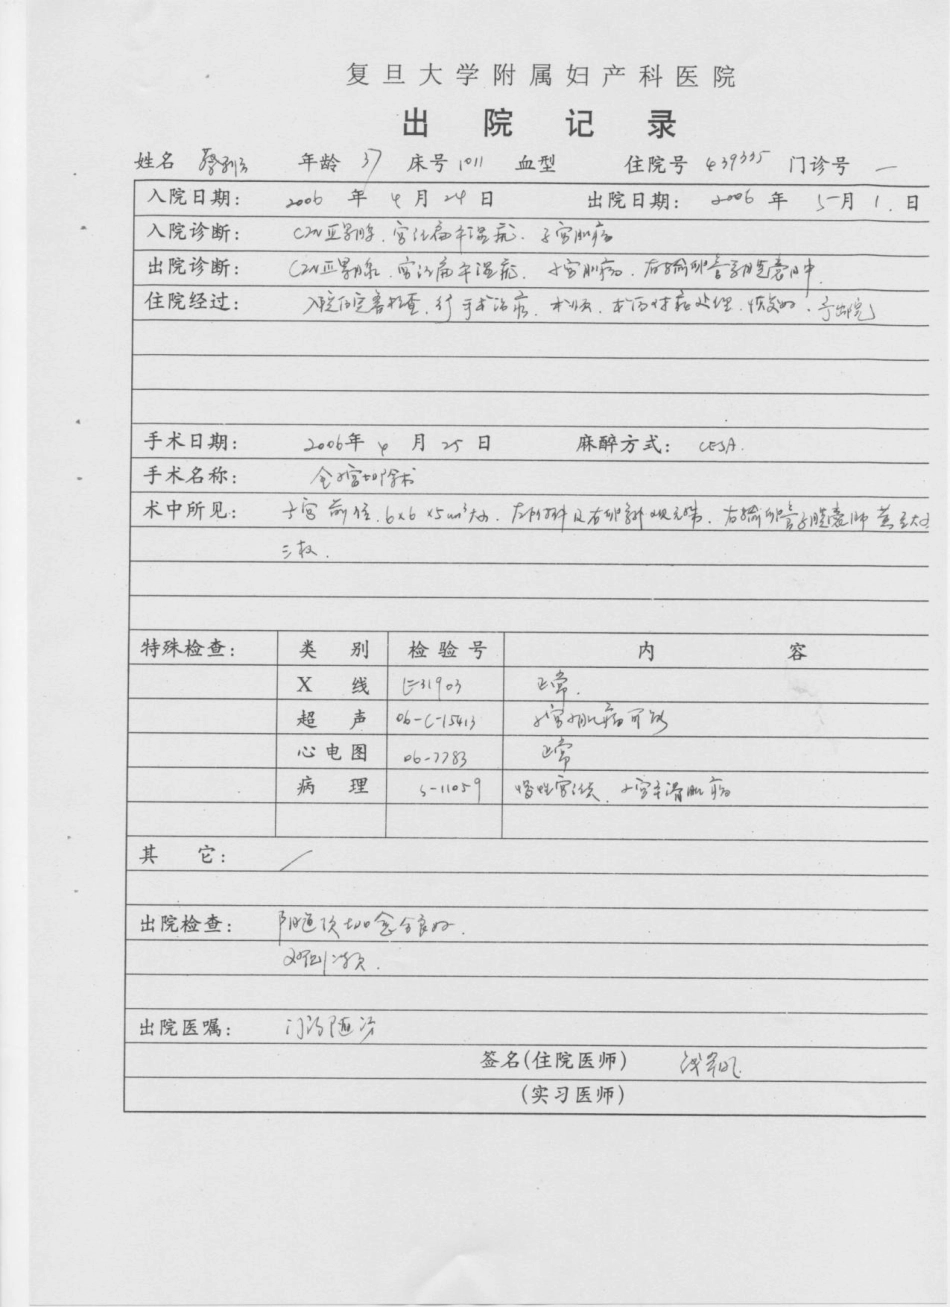 复旦大学附属妇产科医院
出院记录
姓名 年龄 37 床号 1011 血型 住院号 439335 门诊号 —
入院日期: 2006 年 4 月 24 日 出院日期: 2006 年 5 月 1 日
入院诊断: 宫颈扁平湿疣. 子宫肌瘤
出院诊断: 宫颈扁平湿疣. 子宫肌瘤. 右输卵管系膜囊肿
住院经过: 入院后完善检查, 行手术治疗, 术顺, 术后对症处理, 恢复好, 予出院
手术日期: 2006年 4 月 25 日 麻醉方式: CESA.
手术名称: 全子宫切除术
术中所见: 子宫前位, 6×6×5cm³大小, 左附件及右卵巢外观无殊, 右输卵管系膜囊肿黄豆大
三枚.
特殊检查: 类别 检验号 内容
X线 31903 正常.
超声 06-C-15413 子宫小肌瘤可能
心电图 06-7783 正常
病理 S-11059 慢性宫颈炎, 子宫平滑肌瘤
其它: /
出院检查: 阴道顶切口愈合良好.
出院医嘱: 门诊随访
签名(住院医师)
(实习医师)